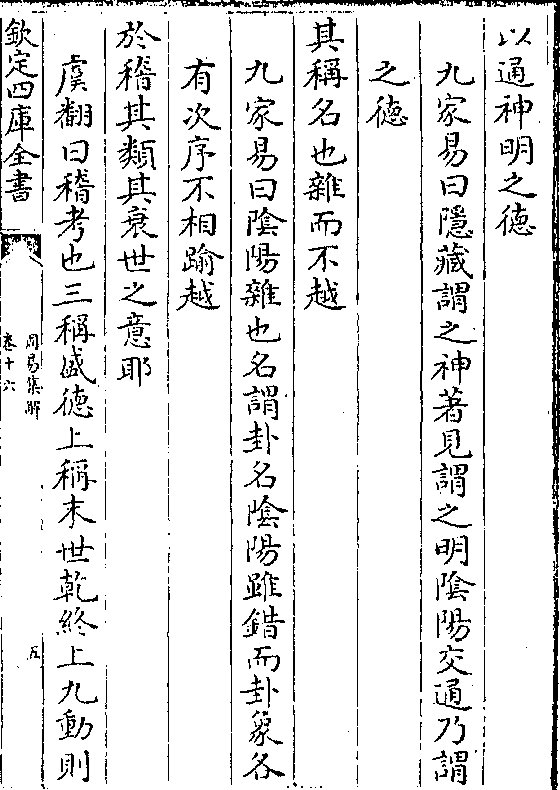 以通神明之德
九家易曰隱藏謂之神著見謂之明陰陽交通乃謂
之德
其稱名也雜而不越
九家易曰陰陽雜也名謂卦名陰陽雖錯而卦象各
有次序不相踰越
於稽其類其衰世之意耶
虞翻曰稽考也三稱盛德上稱末世乾終上九動則
欽定四庫全書
周易集解
卷十六
五